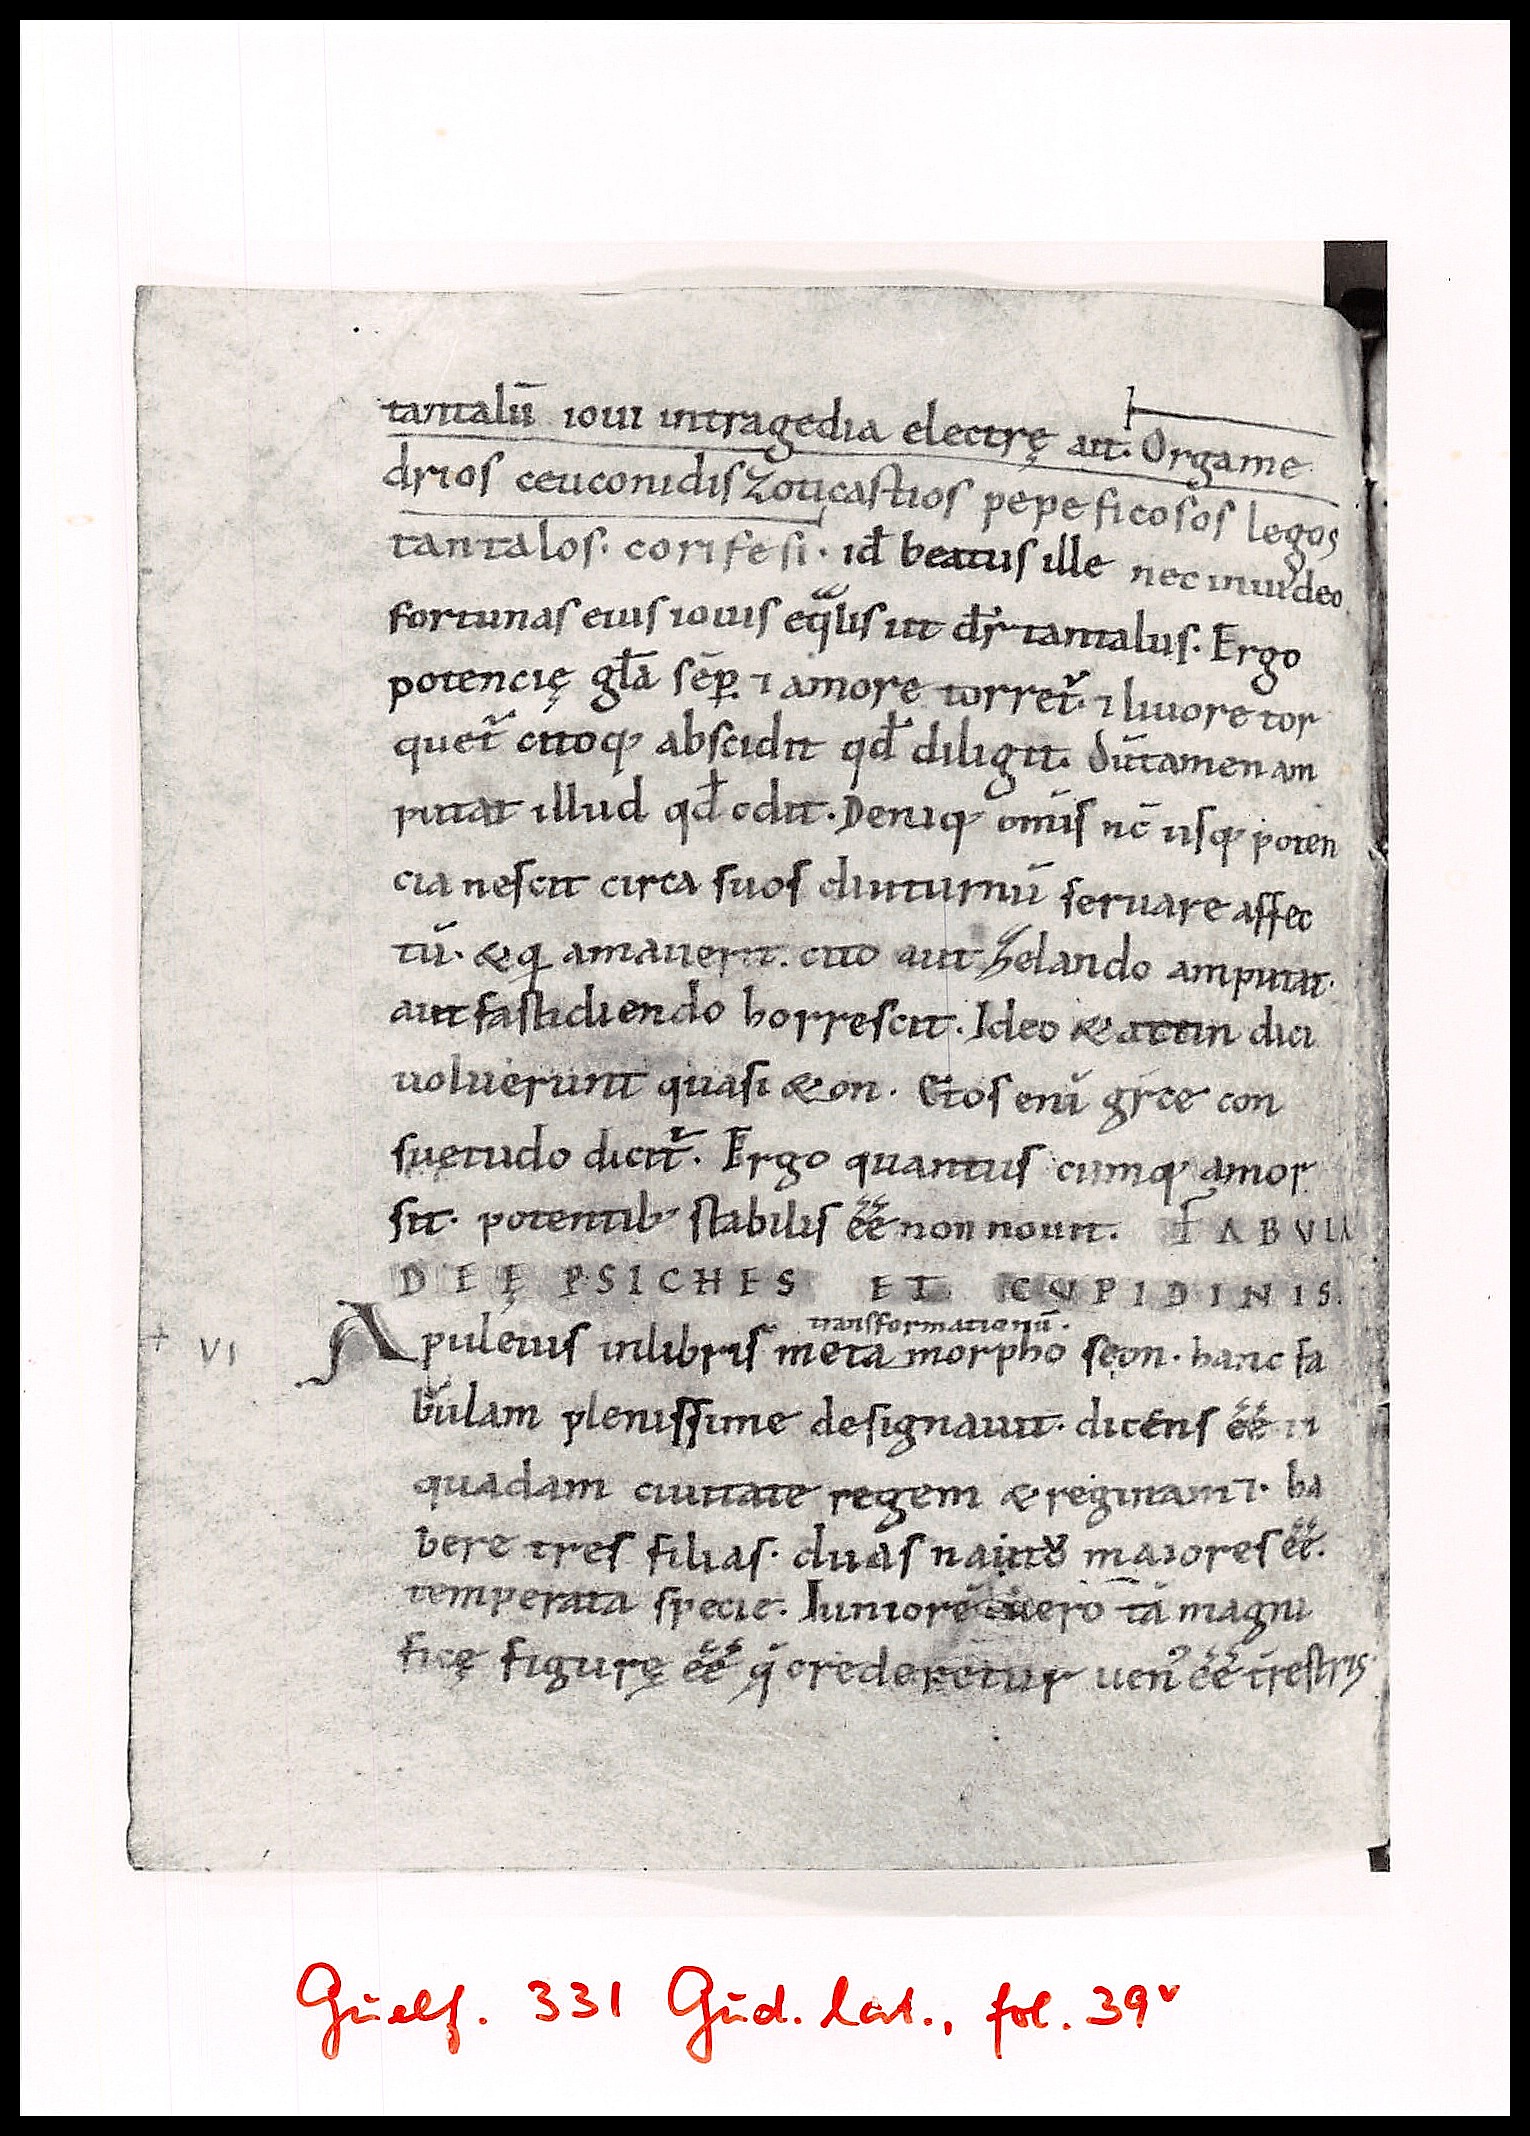 tantalū ioui intragedia electrę ait. Orgame
drios ceuconidis zoticastios pepeficosos legos
tantalos. corifesi. id̄ beatus ille nec inuideo
fortunas eius iouis eq̄lis ut dr̄ tantalus. Ergo
potencię gl̄a sēp. ⁊ amore torret̃. ⁊ liuore tor
quet̃ citoq; abscidit qd̄ diligit. dūtamen am
putat illud qd̄ odit. Deniq; om̄is nc̄ usq; poten
cia nescit circa suos diuturnū seruare affec
tū. & q̨ amauerit. cito aut zelando amputat.
aut fastidiendo horrescit. Ideo & attin dici
uoluerunt quasi & on. Etos enī gr̄ce con
suętudo dicit̃. Ergo quantus cumq; amor
sit. potentib; stabilis ēē non nouit. FABVLA
DEĘ PSICHES ET CVPIDINIS.
transformationū.
+ VI Apuleius inlibris meta morpho sęon. hanc fa
bulam plenissime designauit. dicens ēē ī
quadam ciuitate regem & reginam ⁊. ha
bere tres filias. duas natu maiores ēē.
temperata specie. Iuniorē uero tā magni
ficę figurę ēē q̄ crederetur uen᾿ ēē tr̄estris.
Guelf. 331 Gud. lat., fol. 39ᵛ